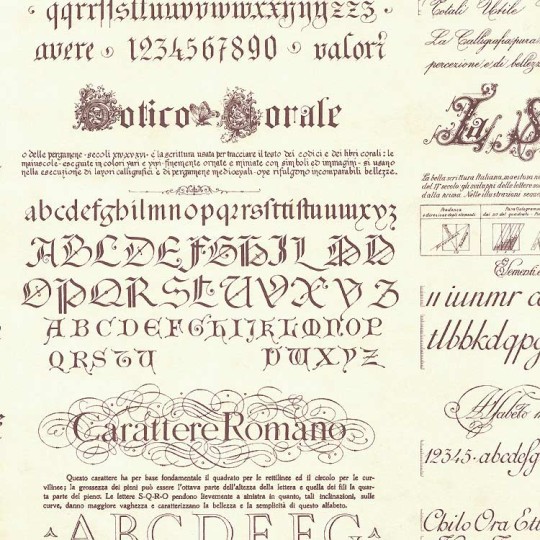 qqrrssttuuvvwwxxyyzzz
avere 1234567890 valori
Gotico Corale
o delle pergamene - secoli XIV·XV·XVI - è la scrittura usata per tracciare il testo dei codici e dei libri corali: le
maiuscole - eseguite in colori vari e vivi - finemente ornate e miniate con simboli ed immagini - si usano
nella esecuzione di lavori calligrafici & di pergamene medioevali - ove rifulgono incomparabili bellezze.
abcdefghilmnopqrrsſttiſttuuwxyz
ABCDEFGHILMN
OPQRSTUVXYZ
ABCDEFGHIJKLMNOP
QRSTU VWXYZ
Carattere Romano
Questo carattere ha per base fondamentale il quadrato per le rettilinee ed il circolo per le cur-
vilinee; la grossezza dei pieni può essere l'ottava parte dell'altezza della lettera e quella dei fili la quar-
ta parte dei pieni. Le lettere S-Q-R-O pendono lievemente a sinistra in quanto, tali inclinazioni, sulle
curve, danno maggiore vaghezza e caratterizzano la bellezza e la semplicità di questo alfabeto.
ABCDEFG
Totali Utile
La Calligrafia pura
percezione e di bellezz
La bella scrittura Italiana, maestra n
del 17° secolo gli sviluppi delle lettere
dalla penna. Nelle illustrazioni
Pendenza
Elementi
ııiunmr a
tlbbkdqpg
Alfabeto m
12345·abcdefg
Chilo Ora Ett